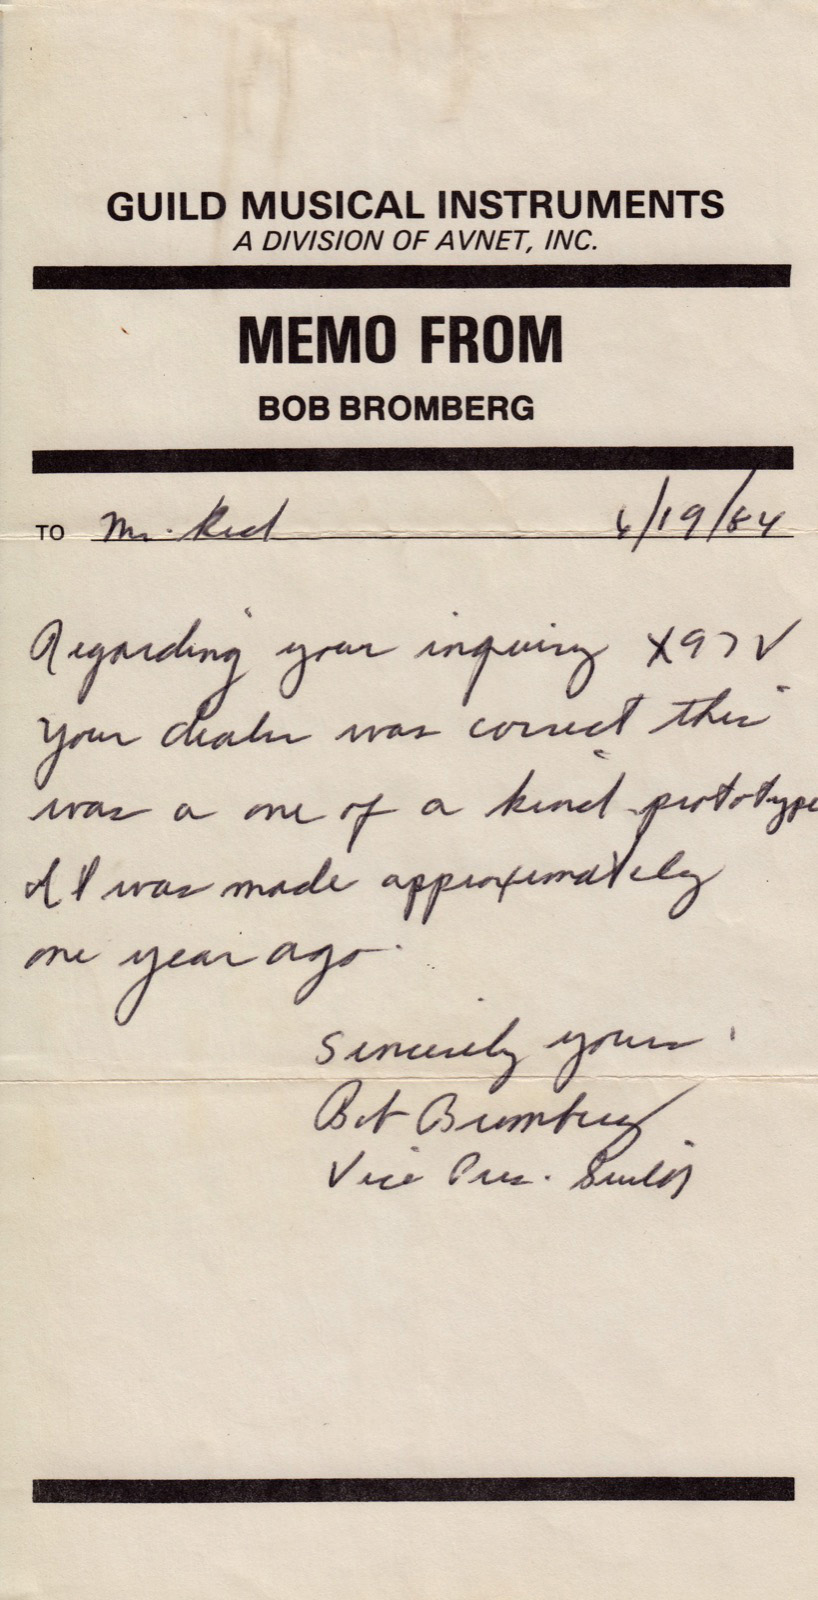 GUILD MUSICAL INSTRUMENTS
A DIVISION OF AVNET, INC.
MEMO FROM
BOB BROMBERG
TO Mr. 6/19/84
Regarding your inquiry X97V
Your dealer was correct this
was a one of a kind prototype
It was made approximately
one year ago.
Sincerely yours
Bob Bromberg
Vice Pres. Guild